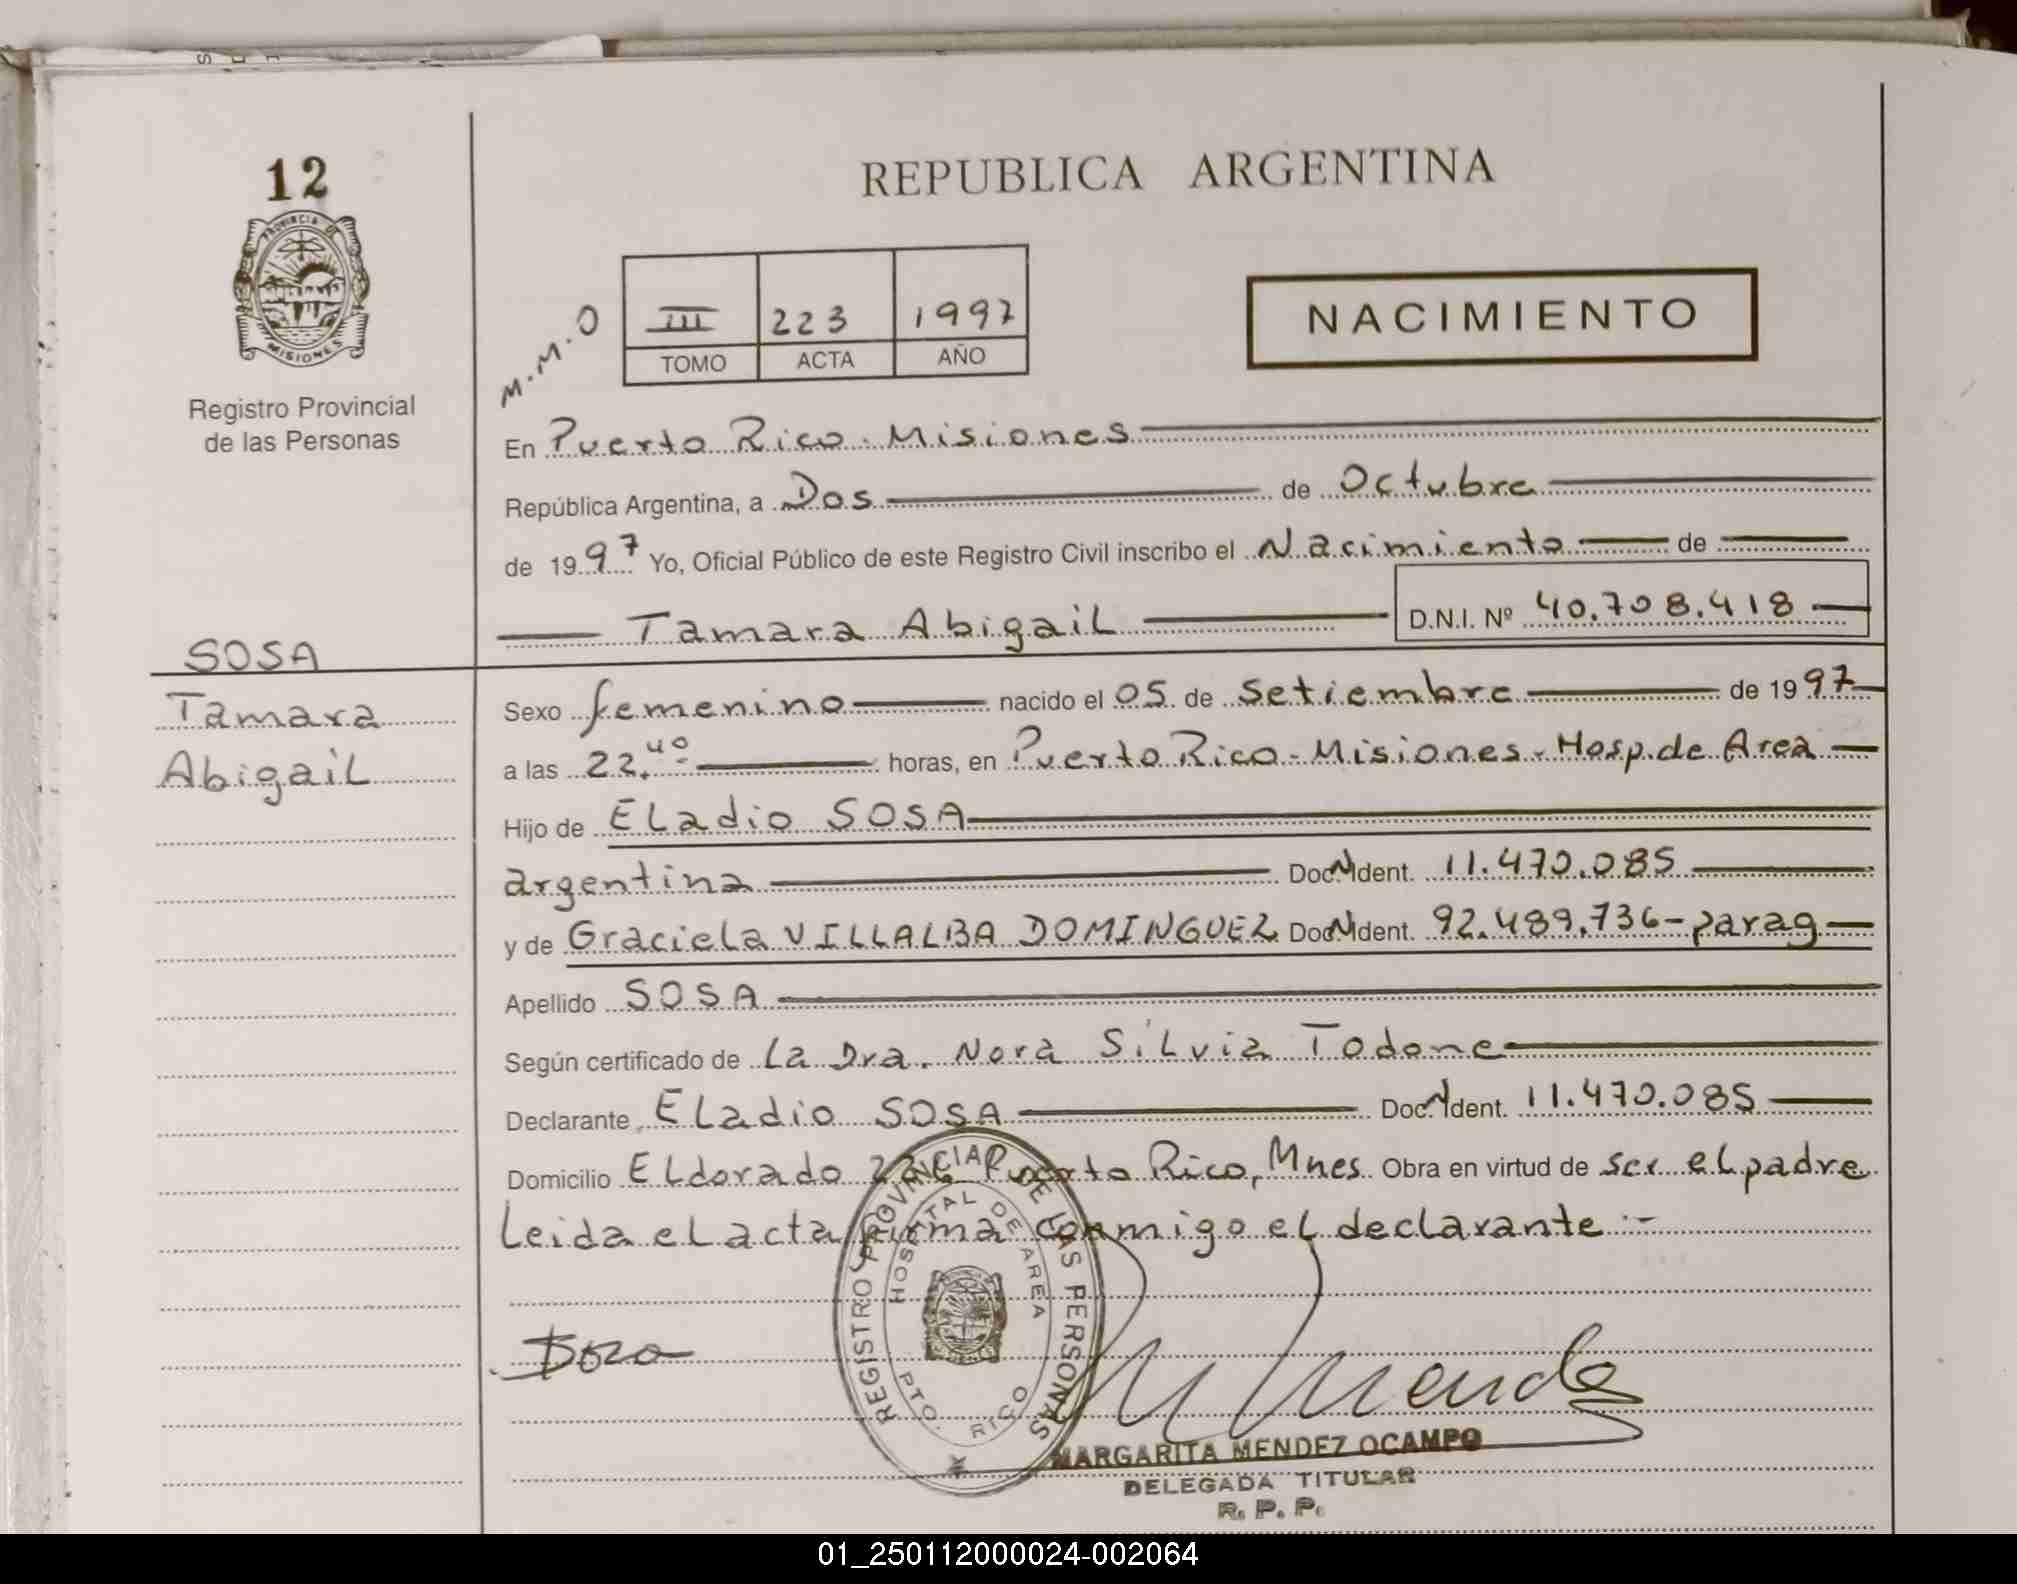 12
PROVINCIA DE
MISIONES
Registro Provincial
de las Personas
REPUBLICA ARGENTINA
M.M.O
III 223 1997
TOMO ACTA AÑO
NACIMIENTO
En Puerto Rico - Misiones
República Argentina, a Dos de Octubre
de 1997 Yo, Oficial Público de este Registro Civil inscribo el Nacimiento de
Tamara Abigail D.N.I. Nº 40.708.418
SOSA
Tamara
Abigail
Sexo femenino nacido el 05 de Setiembre de 1997
a las 22.40 horas, en Puerto Rico - Misiones - Hosp. de Area
Hijo de Eladio SOSA
argentina Doc. N Ident. 11.470.085
y de Graciela VILLALBA DOMINGUEZ Doc. N Ident. 92.489.736 - parag
Apellido SOSA
Según certificado de La Dra. Nora Silvia Todone
Declarante Eladio SOSA Doc. N Ident. 11.470.085
Domicilio Eldorado Puerto Rico, Mnes. Obra en virtud de ser el padre
Leida el acta firma conmigo el declarante.-
REGISTRO PROVINCIAL DE LAS PERSONAS
HOSPITAL DE AREA
PTO. RICO
MARGARITA MENDEZ OCAMPO
DELEGADA TITULAR
R. P. P.
01_250112000024-002064